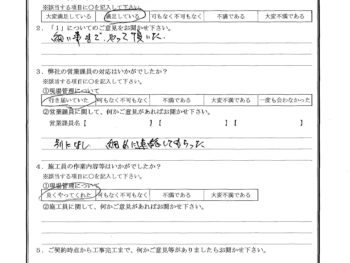 ※該当する項目に○を記入して下さい。
大変満足している 満足している 可もなく不可もなく 不満である 大変不満である
2．「1」についてのご意見をお聞かせ下さい。
細い事まで、やって頂いた。
3．弊社の営業課員の対応はいかがでしたか？
※該当する項目に○を記入して下さい。
①現場管理について
行き届いていた 可もなく不可もなく 不満である 大変不満である 一度も会わなかった
②営業課員に関して、何かご意見があればお聞かせ下さい。
営業課員名【 】【 】【 】
別になし 細めに連絡してもらった
4．施工員の作業内容等はいかがでしたか？
※該当する項目に○を記入して下さい。
①現場管理について
良くやってくれた 可もなく不可もなく 不満である 大変不満である
②施工員に関して、何かご意見があればお聞かせ下さい。
5．ご契約時点から工事完工まで、何かご意見等がありましたらお聞かせ下さい。